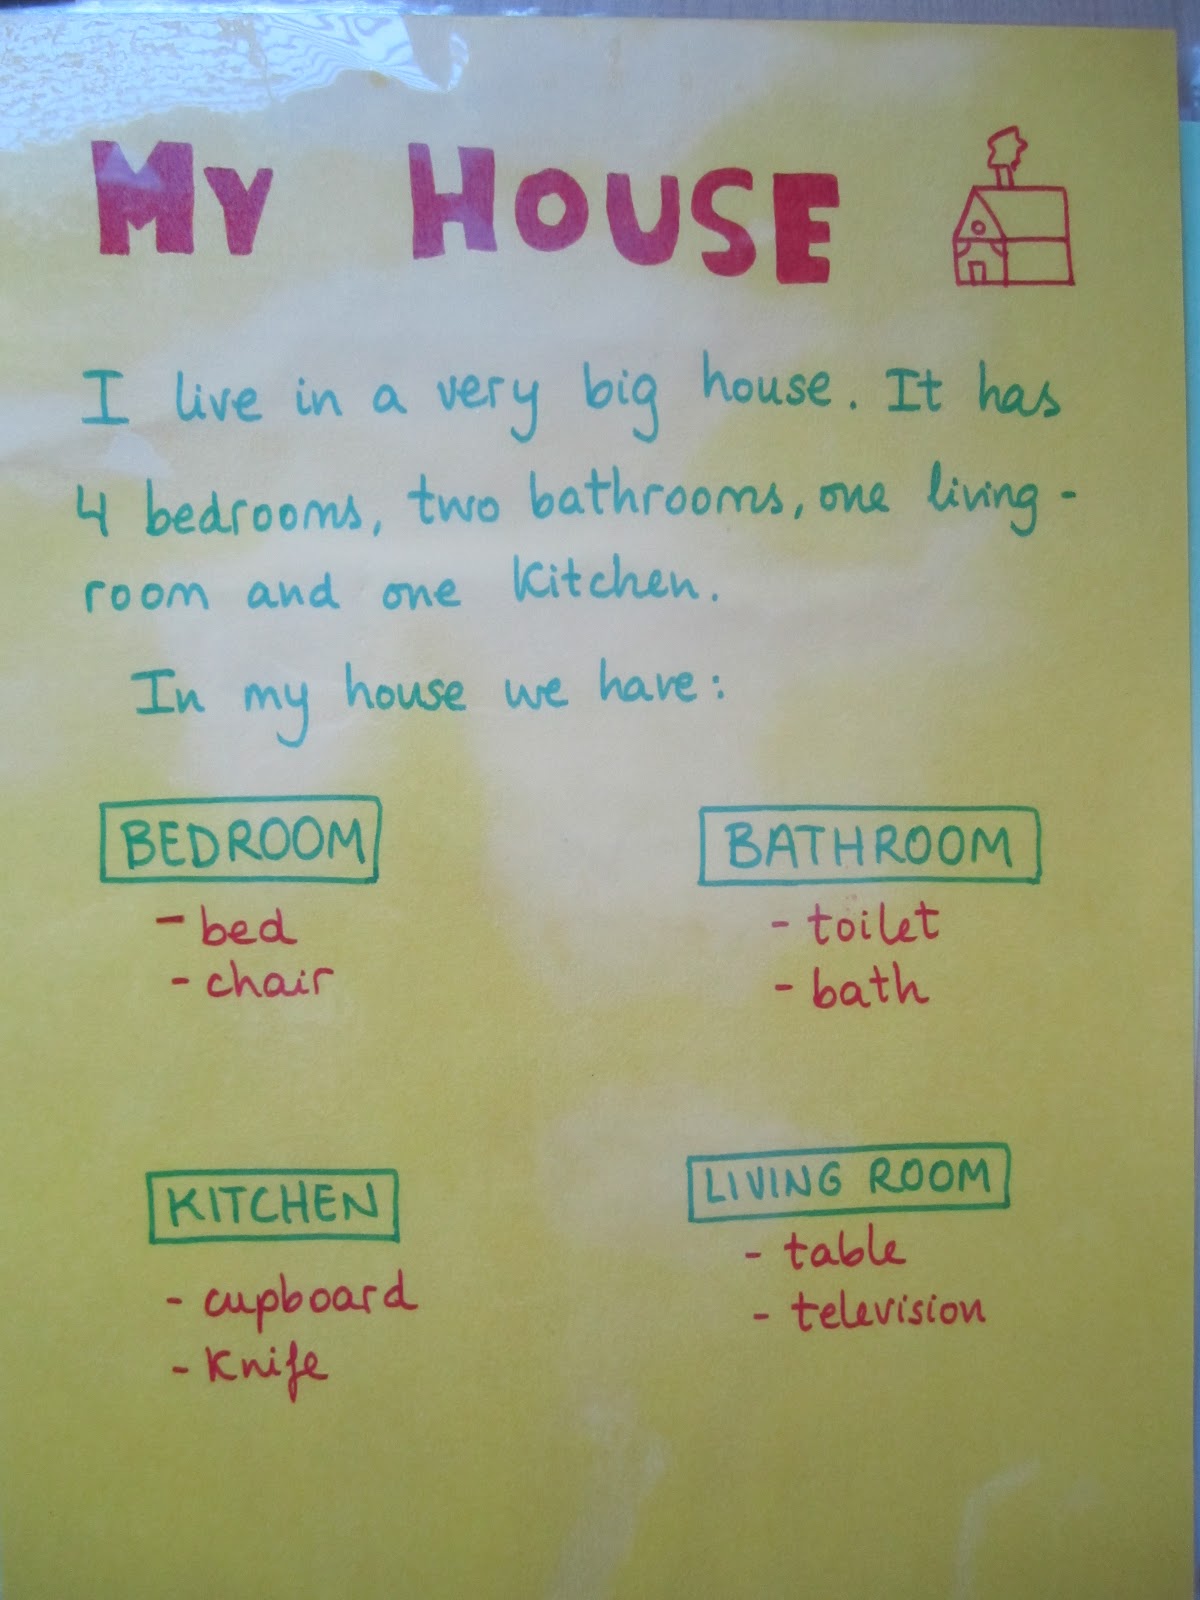 MY HOUSE
I live in a very big house. It has
4 bedrooms, two bathrooms, one living-
room and one kitchen.
In my house we have:
BEDROOM
- bed
- chair
BATHROOM
- toilet
- bath
KITCHEN
- cupboard
- Knife
LIVING ROOM
- table
- television